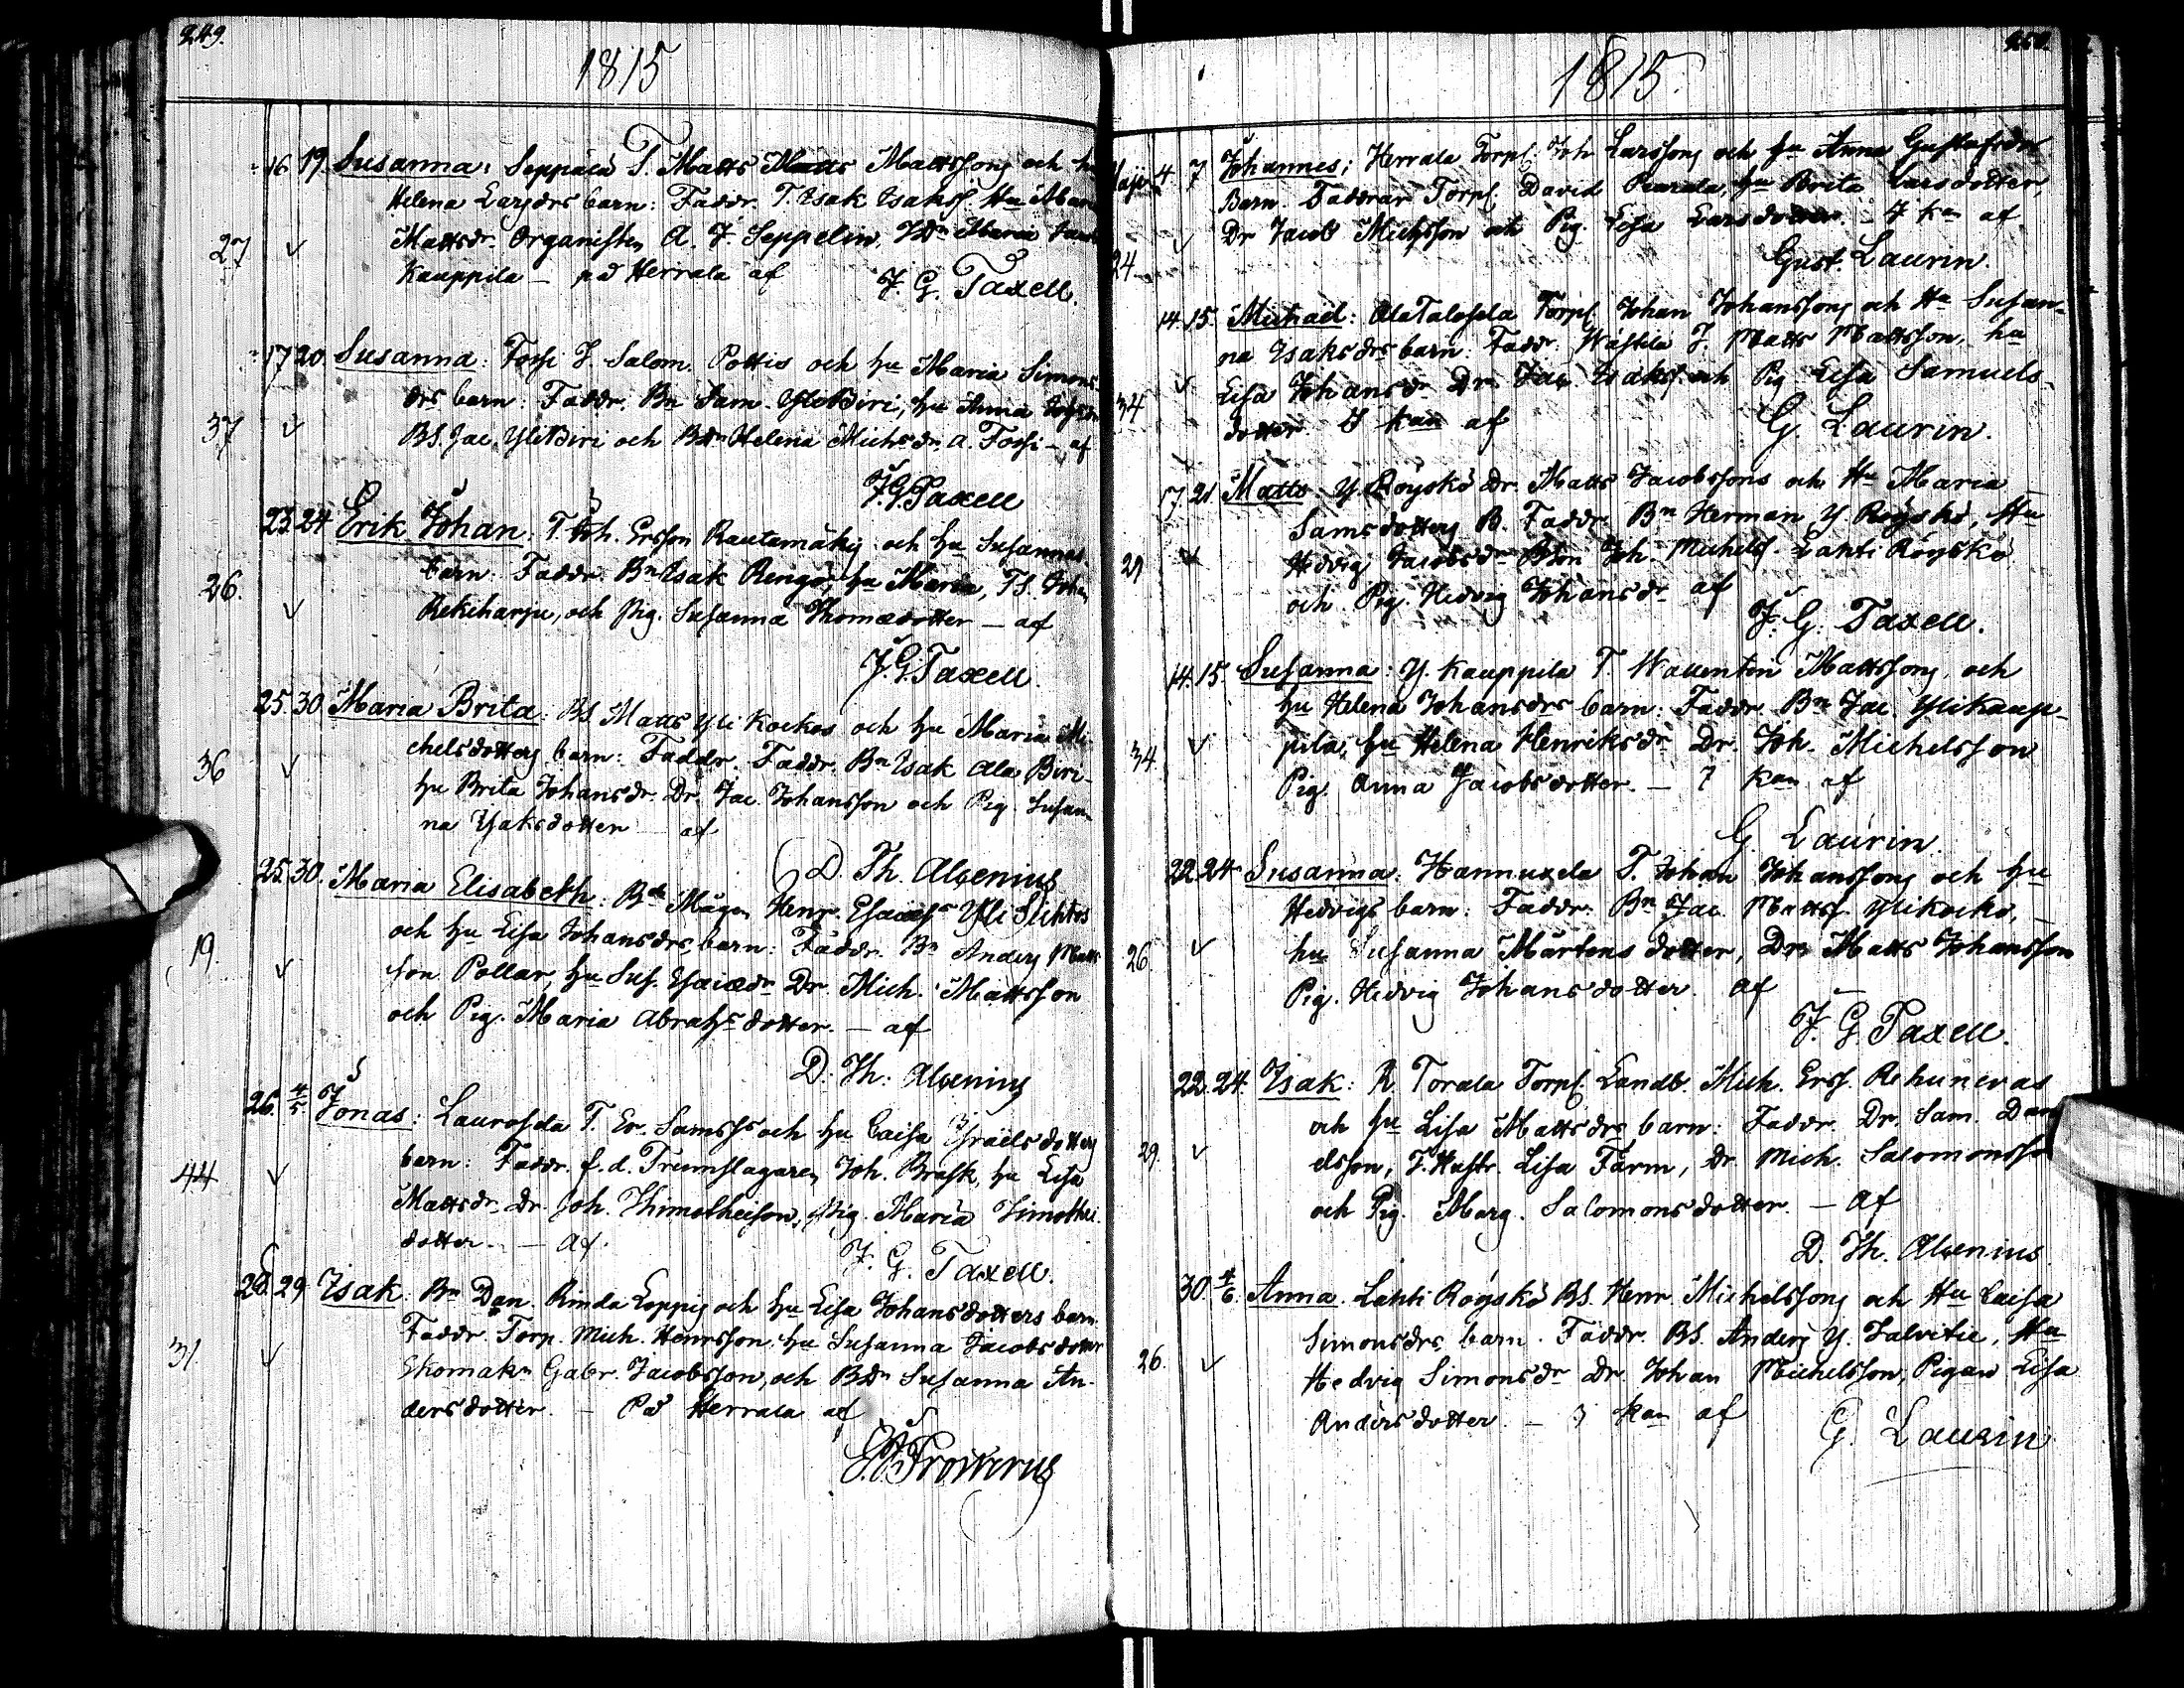 249.
1815
16. 19. Susanna: Seppälä T. Matts Matts Mattssons och hu
Helena Larsdrs barn: Faddr. T. Isak Isakss. Hu Maria
27 Mattsdr. Organisten A. J. Seppelin, JDr Maria
Kauppila — på Herrala af
J. G. Taxell.
17 20. Susanna: Forsi J. Salom. Pottis och hu Maria Simons
drs barn: Faddr. Bn Sam. YliBiri, hu Anna
37 BS. Jac. YliBiri och BDr Helena Michsdr. A. Forsi — af
J. G. Taxell
23 24 Erik Johan: T. Joh. Ersson Rautamäkis och hu Susannas
26. barn: Faddr. Bn Isak Rengo, hu Maria, TS. Johan
Rekiharju, och Pig. Susanna Thomædotter — af
J. G. Taxell
25. 30. Maria Brita: BS Matts Yli Kockos och hu Maria Mi-
36 chelsdotters barn: Faddr. Faddr. Bn Isak Ala Biri-
hu Brita Johansdr. Dr. Jac. Johansson och Pig. Susan-
na Isaksdotter af
D. Th. Alcenius
25. 30. Maria Elisabeth: Bde Mågen Henr. Esaiæss Yli
och hu Lisa Johansdrs barn: Faddr. Bn Anders Matts
19. son Pollar, hu Sus. Esaiædr Dr. Mich. Mattsson
och Pig. Maria Abrahsdotter. — af
D. Th. Alcenius
26. 4/5 Jonas: Laurosela T. Er. Samss och hu Caisa Israelsdotters
barn: Faddr. f.d. Trumslagaren Joh. Brask, hu Lisa
44 Mattsdr. Dr. Joh. Thimotheison, Pig. Maria Timothei
dotter. — af.
J. G. Taxell.
28. 29 Isak. Bn Dan. Rinda Loppis och hu Lisa Johansdotters barn.
Faddr. Torp. Mich. Henrsson hu Susanna Jacobsdotter
31 Skomakn Gabr. Jacobsson, och BDr Susanna An-
dersdotter. — På Herrala af
1815.
Maji 4 7 Johannes; Herrala Torp. Joh Larssons och hu Anna Gustafsdrs
Barn. Faddrar Torp. David Pearala, hu Brita Larsdotter,
24 Dr Jacob Michsson och Pig. Lisa Larsdotter — J kan af
Gust. Laurin.
14. 15. Michael: AlaTalosela Torp. Johan Johanssons och Hu Susan-
na Isaksdrs barn: Faddr. Wästilä J. Matts Mattsson, hu
34 Lisa Johansdr. Dr. Jac. Isakss. och Pig Lisa Samuels-
dotter. J kan af
G. Laurin.
17. 21. Matts. Y. Röyskö Dr. Matts Jacobssons och Hu Maria
Samsdotters B. Faddr. Bn Herman Y Röyskö, Hu
29 Hedvig Jacobsdr Bson Joh. Michels. Lahti Röyskö
och Pig. Hedvig Johansdr af
J. G. Taxell.
14. 15. Susanna: Y. Kauppila T. Wallentin Mattssons och
hu Helena Johansdrs barn: Faddr. Bn Jac. Ylikaup-
34 pila, hu Helena Henriksdr Dr. Joh. Michelsson
Pig. Anna Jacobsdotter. — J kan af
G. Laurin
22. 24 Susanna: Hannuxela T. Johan Johanssons och hu
Hedvigs barn: Faddr. Bn Jac. Mattss. Ylikocko, —
26. hu Susanna Mårtensdotter, Dr. Matts Johansson
Pig. Hedvig Johansdotter. af
J. G. Taxell.
22. 24. Isak: R. Torala Torp. Landb. Mich. Erss. Rehunevas
och hu Lisa Mattsdrs barn: Faddr. Dr. Sam. Dani
29. elsson, J. Hustr. Lisa Farm, Dr. Mich. Salomonsson
och Pig. Marg. Salomonsdotter. — af
D. Th. Alcenius.
30. 4/6. Anna. Lahti Röyskö BS. Henr. Michelssons och Hu Caisa
Simonsdrs barn. Faddr. BS. Anders Y. Talvitie, Hu
26. Hedvig Simonsdr Dr. Johan Michelsson, Pigan Lisa
Andersdotter. — J kan af
G. Laurin